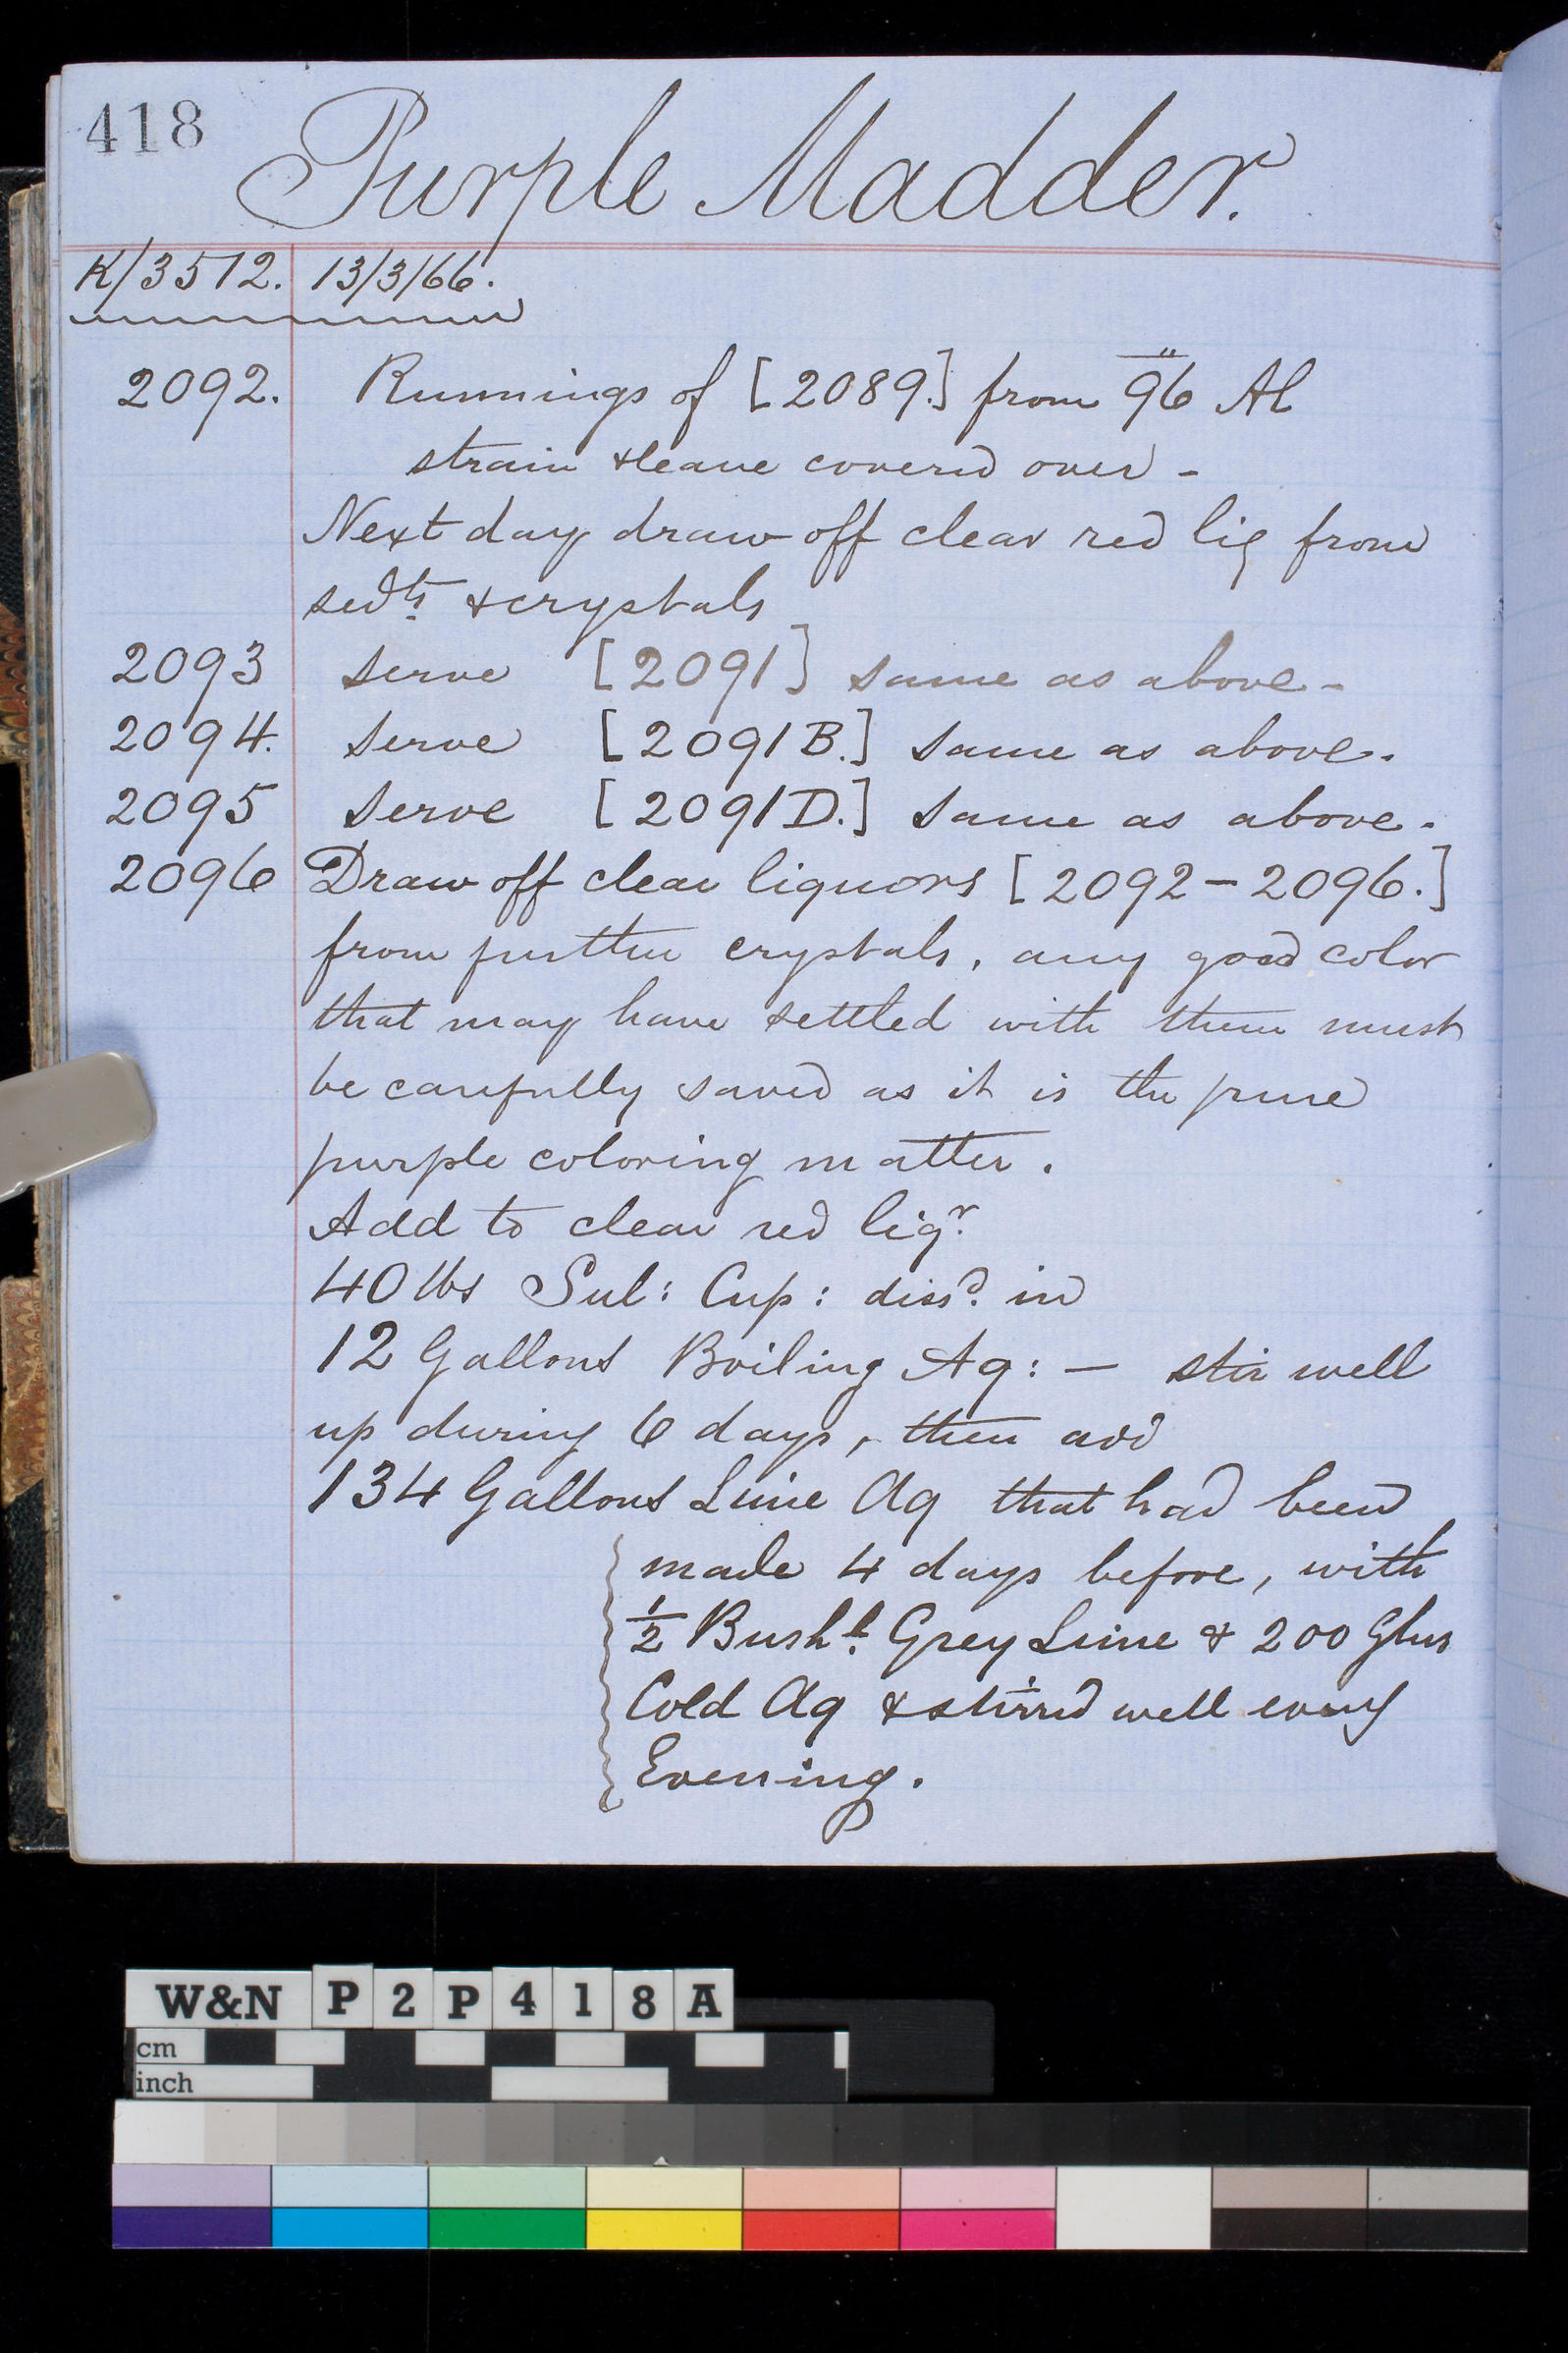 418
Purple Madder.
K/3512. 13/3/66.
2092. Runnings of [2089.] from 96 Al
strain & leave covered over -
Next day draw off clear red liq from
sedts & crystals
2093 Serve [2091] same as above -
2094. Serve [2091 B.] same as above.
2095 Serve [2091 D.] same as above.
2096 Draw off clear liquors [2092 - 2096.]
from further crystals, any good color
that may have settled with them must
be carefully saved as it is the pure
purple coloring matter.
Add to clear red liqr.
40 lbs Sul: Cup: dissd. in
12 Gallons Boiling Aq: — stir well
up during 6 days, then add
134 Gallons Lime Aq that had been
made 4 days before, with
1/2 Bushl. Grey Lime & 200 Glns
Cold Aq & stirred well every
Evening.
W&N P2P418A
cm
inch